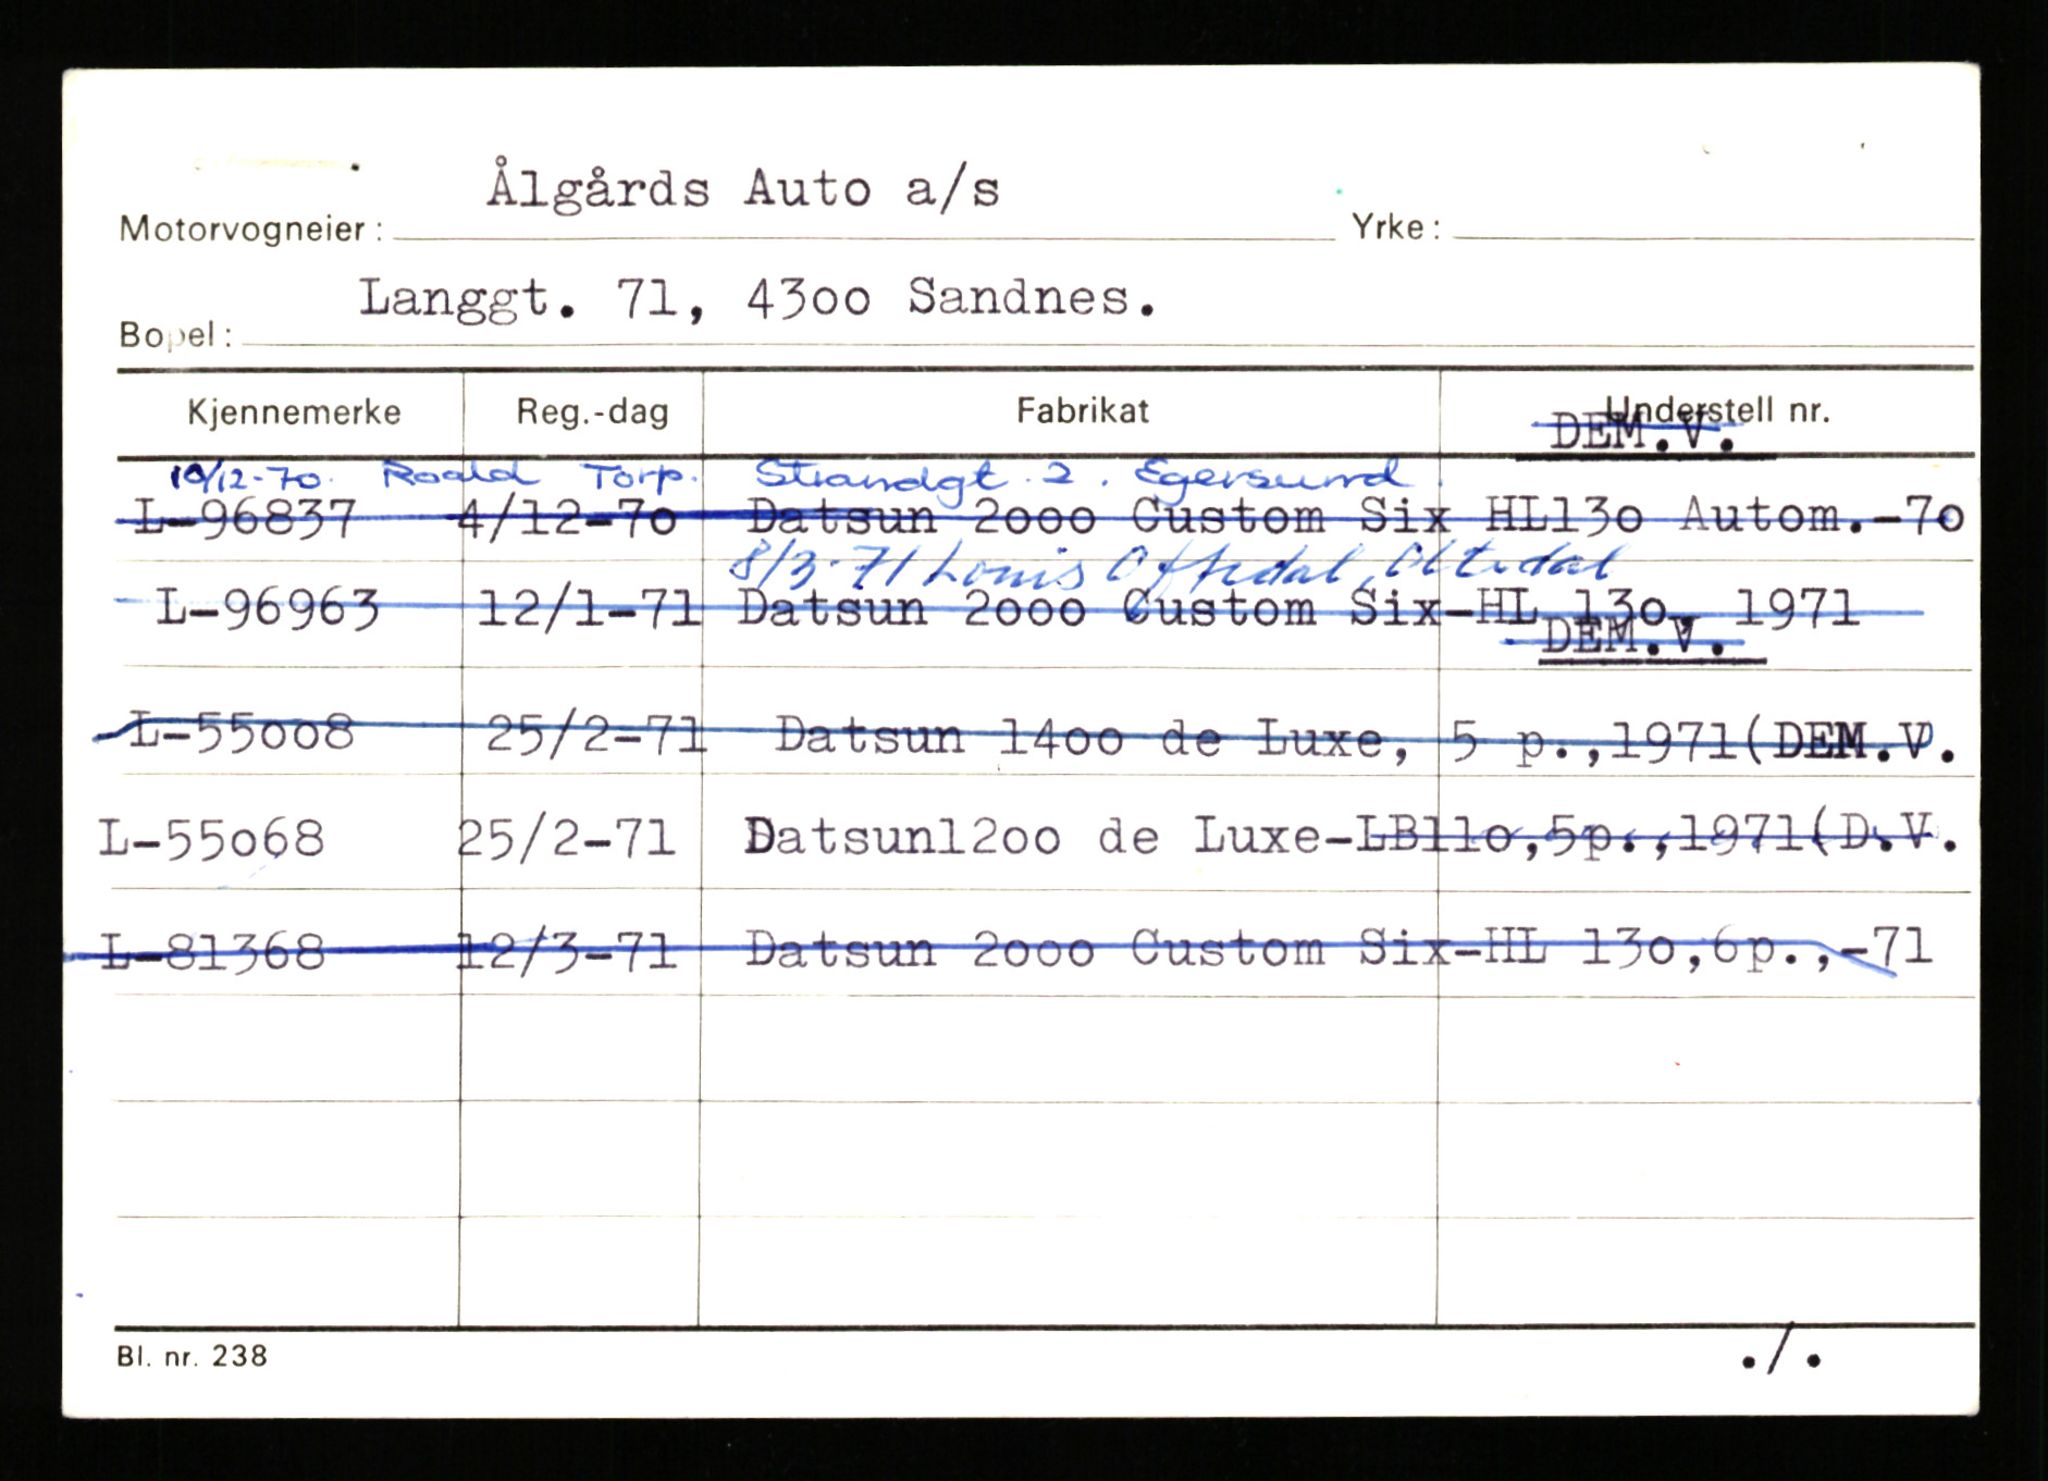 Ålgårds Auto a/s
Motorvogneier: Yrke:
Langgt. 71, 4300 Sandnes.
Bopel:
Kjennemerke Reg.-dag Fabrikat Understell nr.
DEM.V.
10/12-70. Roald Torp. Strandgt. 2. Egersund.
L-96837 4/12-70 Datsun 2000 Custom Six HL130 Autom.-70
8/3-71 Louis Oftedal, Oltedal
L-96963 12/1-71 Datsun 2000 Custom Six-HL 130, 1971
DEM.V.
L-55008 25/2-71 Datsun 1400 de Luxe, 5 p.,1971(DEM.V.
L-55068 25/2-71 Datsun1200 de Luxe-LB110,5p.,1971(D.V.
L-81368 12/3-71 Datsun 2000 Custom Six-HL 130,6p.,-71
Bl. nr. 238 ./.